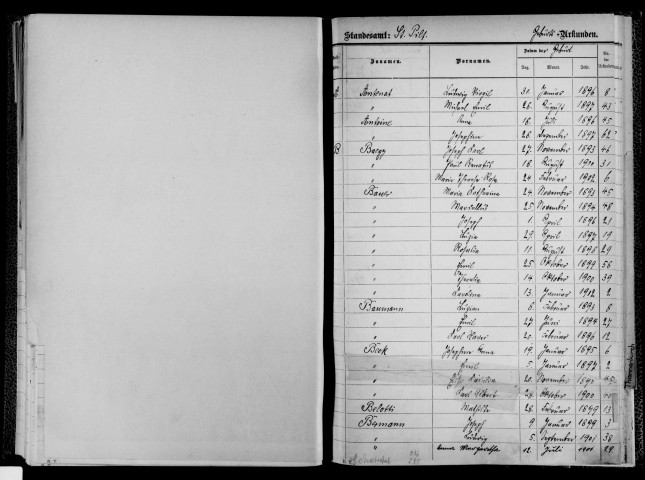 Standesamt: St. Pilt. Geburts-Urkunden.
Datum der Geburt
Zunamen. Vornamen. Tag. Monat. Jahr.
A Antenat Ludwig Virgil 31. Januar 1896 8
" Michael Emil 26. August 1897 43
Antoine Anna 18. Juli 1896 45
" Josephine 26. Dezember 1897 62
B Baegy Joseph Karl 27. November 1893 46
" Paul Renatus 18. August 1900 31
" Maria Theresia Rosa 24. Februar 1902 6
Bauer Maria Katharina 24. November 1893 45
" Marcellus 25. November 1894 48
" Joseph 1. April 1896 21
" Luzia 29. April 1897 19
" Rosalia 11. August 1898 29
" Emil 25. Oktober 1899 56
" Theresia 14. Oktober 1900 39
" Karolina 13. Januar 1902 2
Baumann Luzian 6. Februar 1893 8
" Emil 27. Juni 1894 27
" Karl Xaver 2. Februar 1896 12
Beck Josephine Anna 19. Januar 1895 6
" Emil 5. Januar 1897 2
" 20. November 45
" Karl Albert 28. Oktober 1900 40
Belotti Mathilde 28. Februar 1899 13
Bemann Joseph 9. Januar 1899 3
" Ludwig 5. September 1901 38
" Anna Margaretha 12. Juli 1901 29